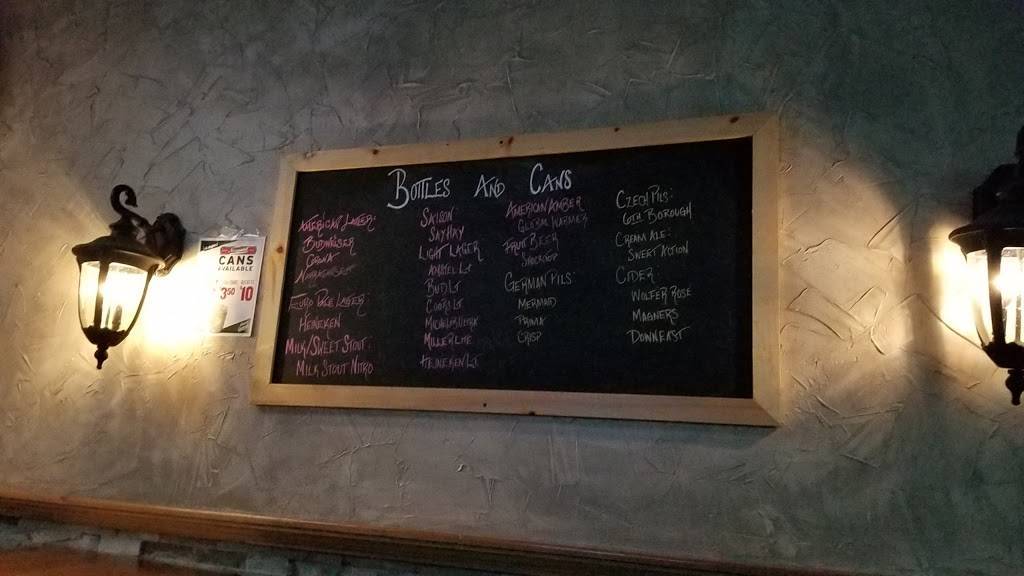 BOTTLES AND CANS
AMERICAN LAGER:
BUDWEISER
CORONA
NARRAGANSETT
EURO PALE LAGER:
HEINEKEN
MILK/SWEET STOUT
MILK STOUT NITRO
SAISON
SAYHAY
LIGHT LAGER
AMSTEL LT
BUD LT
COORS LT
MICHELOB ULTRA
MILLER LITE
HEINEKEN LT
AMERICAN AMBER
GUSSIE WARMER
FRUIT BEER
GERMAN PILS:
MERMAID
PRIMA
CRISP
CZECH PILS:
6TH BOROUGH
CREAM ALE:
SWEET ACTION
CIDER:
WOLFER ROSE
MAGNERS
DOWNEAST
CANS
AVAILABLE
3.50 $10